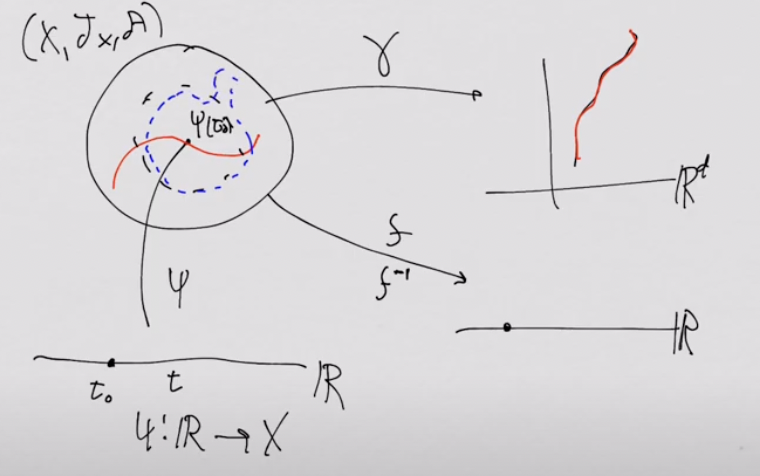 (X, 𝒥x, 𝒜)
γ
ψ(t₀)
ℝᵈ
f
f⁻¹
ψ
ℝ
t₀ t ℝ
ψ: ℝ → X